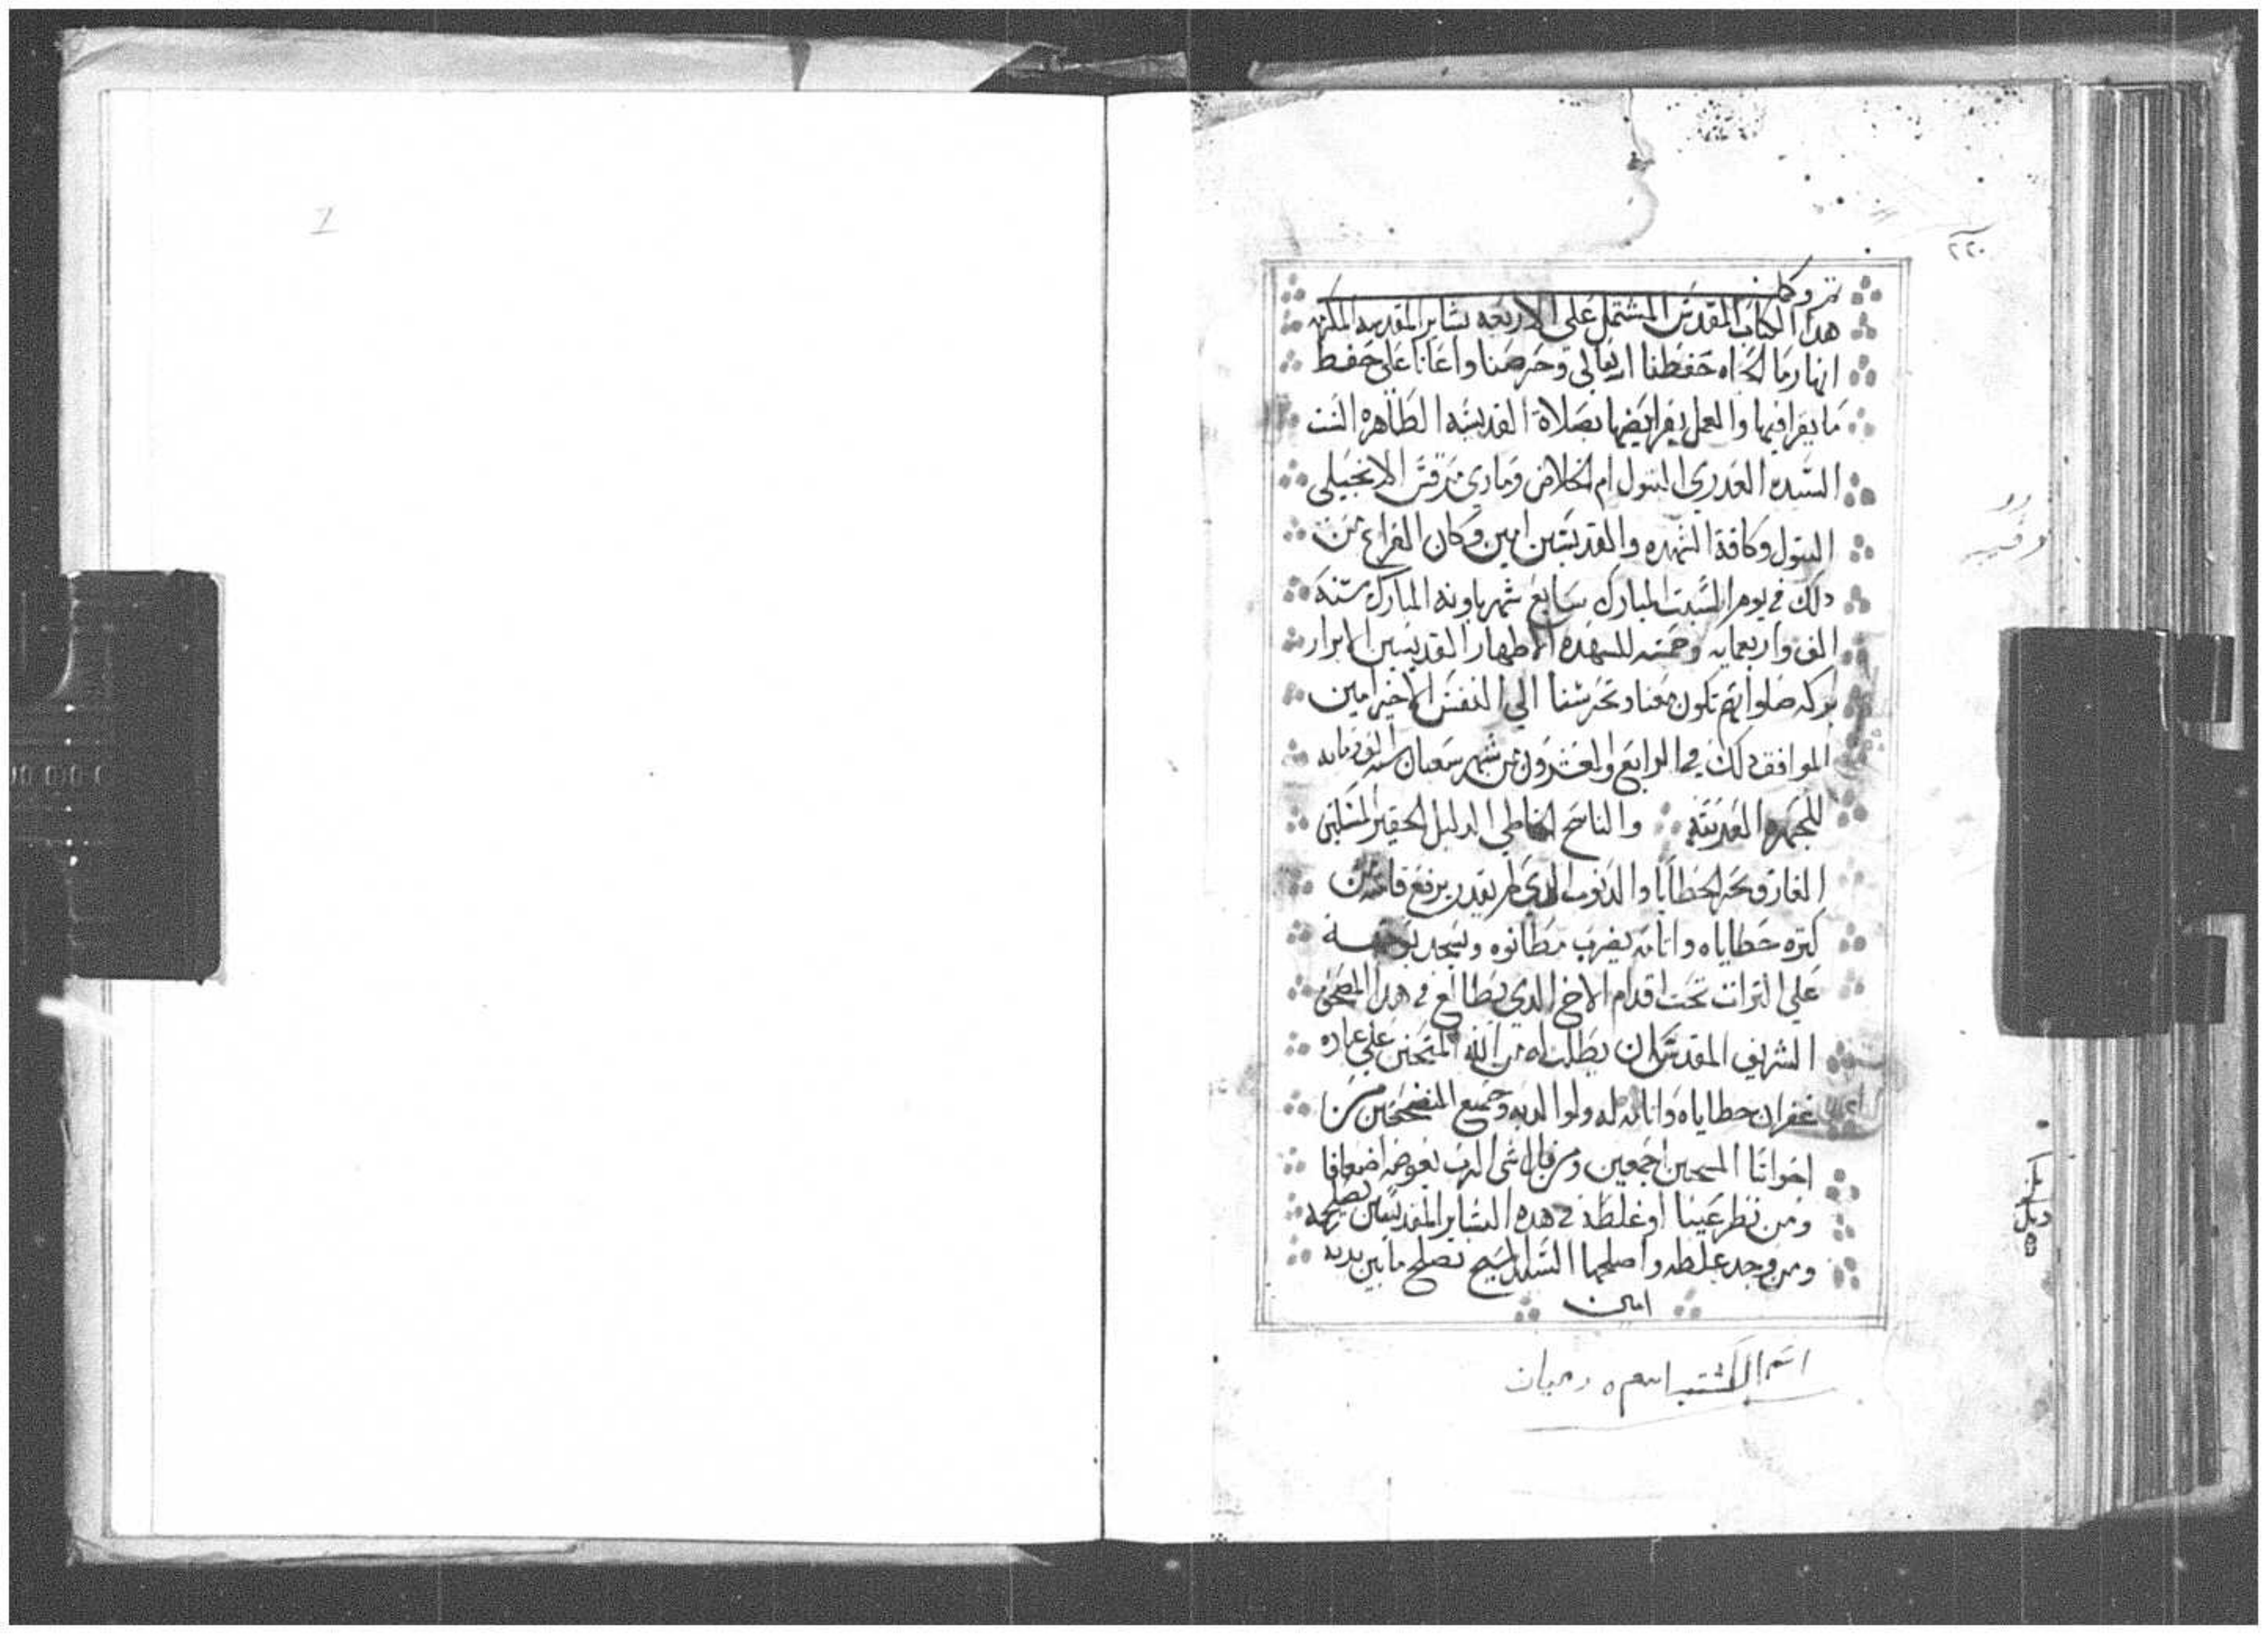 ٢٢٠
تم وكمل
هدا الكتاب المقدس المشتمل على الاربعه بشاير المقدسه المكرمه
انهار ما الحياه حفظنا الرب تعالي وحرصنا واعانا على حفظ
ما يقرا فيها والعمل بفرايضها بصلاة القديسه الطاهره الست
السيده العدري البتول ام الخلاص وماري مرقس الانجيلي
البتول وكافة الشهده والقديسين امين وكان الفراغ من
دلك في يوم السبت المبارك سابع شهر باونه المبارك سنة
الف واربعمايه وخمسه للشهده الاطهار القديسين الابرار
بركه صلواتهم تكون معنا وتحرسنا الي النفس الاخير امين
الموافق دلك في الرابع والعشرون من شهر شعبان سنه الف ومايه
للهجره العربيه والناسخ الخاطي الدليل الحقير المسكين
الغارق بحر الخطايا والدنوب الدي لم يقدر يرفع قامته من
كتره خطاياه واتامه يضرب مطانوه ويسجد بوجهه
علي التراب تحت اقدام الاخ الدي يطالع في هدا المصحف
الشريف المقدس ان يطلب له من الله المتحنن علي عباده
غفران خطاياه واتامه له ولوالديه وجميع المسيحيين من
اخواتنا المسيحين اجمعين ومن قال شي الرب يعوضه اضعافا
ومن نظر عيبا او غلطه في هده البشاير المقدسين يصلحه
ومن وجد غلطه واصلحها السيد المسيح يصلح ما بين يديه
امين
اسم الكتب